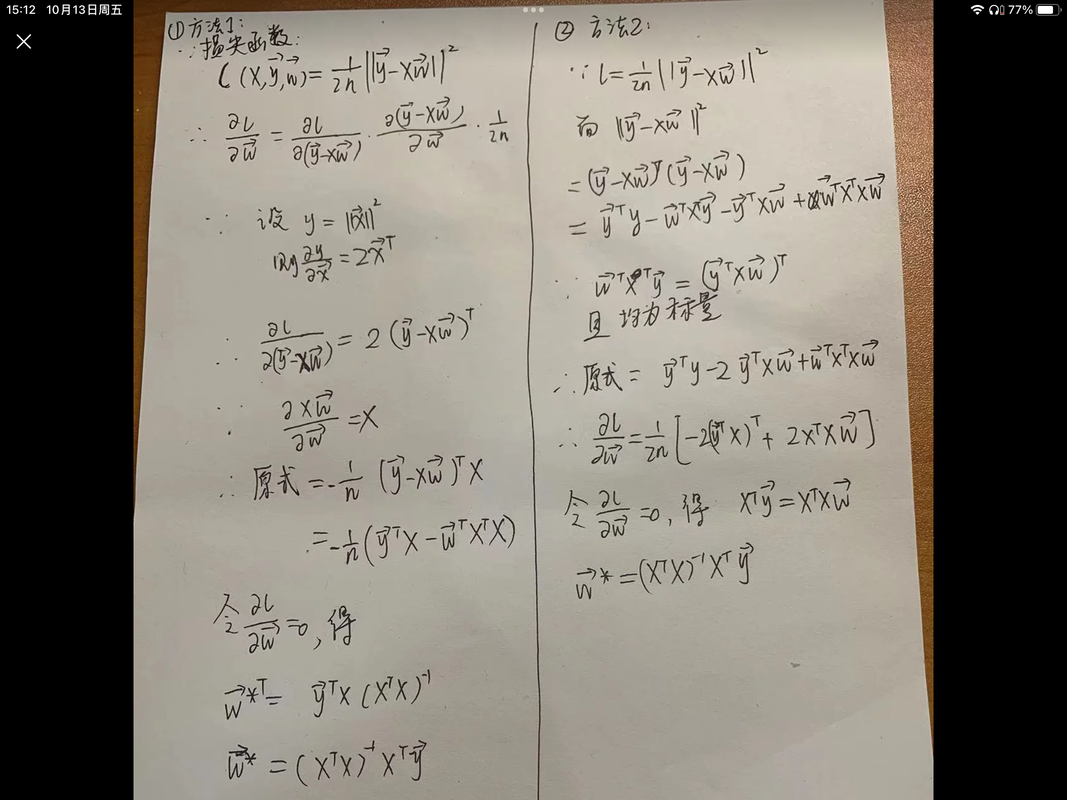 15:12 10月13日周五
77%
① 方法1:
∵ 损失函数:
L(X,y⃗,w⃗)=1/2n ||y⃗-Xw⃗||²
∴ ∂l/∂w⃗ = ∂l/∂(y⃗-Xw⃗) · ∂(y⃗-Xw⃗)/∂w⃗ · 1/2n
∵ 设 y = ||x⃗||²
则 ∂y/∂x⃗ = 2x⃗ᵀ
∴ ∂l/∂(y⃗-Xw⃗) = 2(y⃗-Xw⃗)ᵀ
∵ ∂Xw⃗/∂w⃗ = X
∴ 原式 = -1/n (y⃗-Xw⃗)ᵀX
= -1/n (y⃗ᵀX - w⃗ᵀXᵀX)
令 ∂l/∂w⃗ = 0, 得
w⃗*ᵀ = y⃗ᵀX(XᵀX)⁻¹
w⃗* = (XᵀX)⁻¹Xᵀy⃗
② 方法2:
∵ l = 1/2n ||y⃗-Xw⃗||²
而 ||y⃗-Xw⃗||²
= (y⃗-Xw⃗)ᵀ(y⃗-Xw⃗)
= y⃗ᵀy - w⃗ᵀXᵀy⃗ - y⃗ᵀXw⃗ + w⃗ᵀXᵀXw⃗
∵ w⃗ᵀXᵀy⃗ = (y⃗ᵀXw⃗)ᵀ
且 均为标量
∴ 原式 = y⃗ᵀy - 2y⃗ᵀXw⃗ + w⃗ᵀXᵀXw⃗
∴ ∂l/∂w⃗ = 1/2n [-2(y⃗ᵀX)ᵀ + 2XᵀXw⃗]
令 ∂l/∂w⃗ = 0, 得 Xᵀy⃗ = XᵀXw⃗
w⃗* = (XᵀX)⁻¹Xᵀy⃗